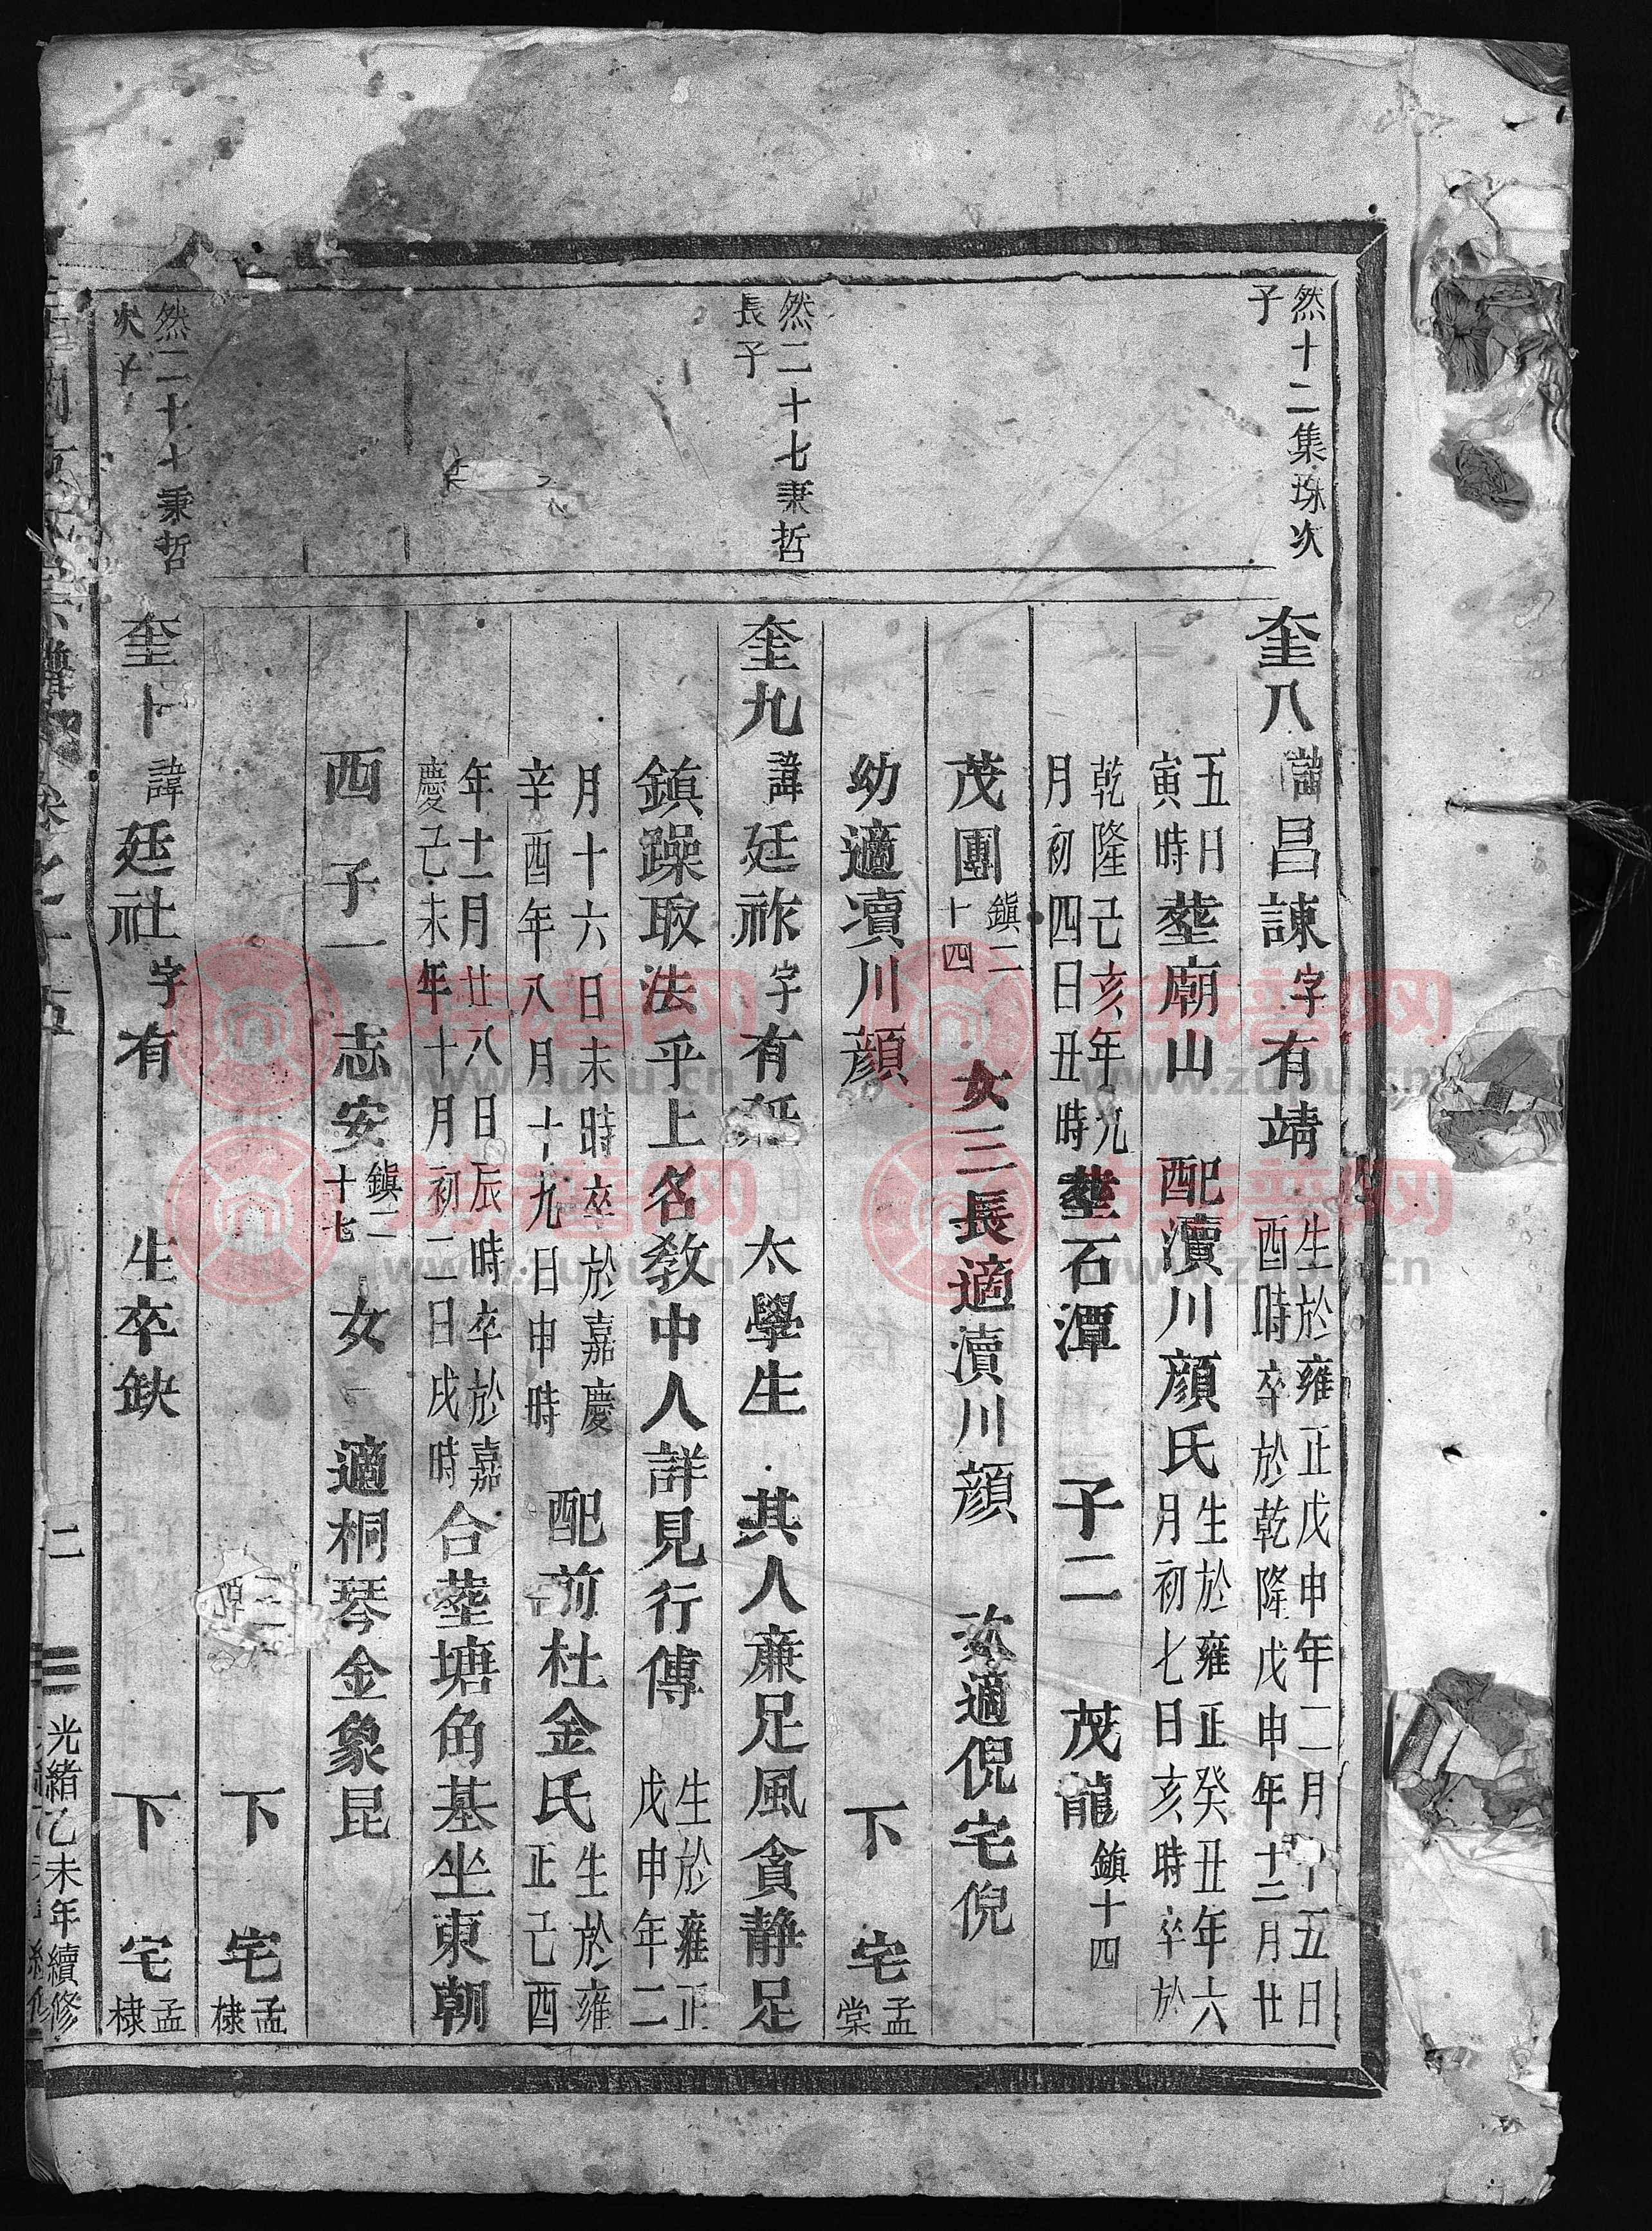 然十二集琭次子
奎八諱昌諫字有靖生於雍正戊申年二月十五日酉時卒於乾隆戊申年十二月廿
五日寅時塟廟山 配瀆川顔氏生於雍正癸丑年六月初七日亥時卒於
乾隆己亥年九月初四日丑時塟石潭 子二 茂龍鎮十四
茂團鎮二十四 女三長適瀆川顔 次適倪宅倪
幼適瀆川顔 下 宅孟棠
然二十七秉哲長子
奎九諱廷祚字有 太學生 其人亷足風貪静足
鎮躁取法乎上名教中人詳見行傳 生於雍正戊申年二
月十六日未時卒於嘉慶辛酉年八月十九日申時 配前杜金氏生於雍正己酉
年十一月廿八日辰時卒於嘉慶己未年十月初二日戌時合塟塘角基坐東朝
西 子一 志安鎮二十七 女一適桐琴金象昆
下 宅孟棣
然二十七秉哲次子
奎十諱廷社字有 生卒缺 下 宅孟棣
卷之十五 二 光緒乙未年續修
族谱网
www.zupu.cn
族谱网
www.zupu.cn
族谱网
www.zupu.cn
族谱网
www.zupu.cn